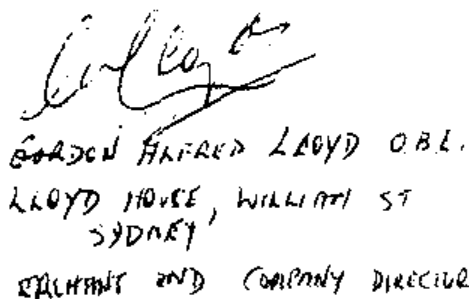 GORDON ALFRED LLOYD O.B.E.
LLOYD HOUSE, WILLIAM ST
SYDNEY
AND COMPANY DIRECTOR